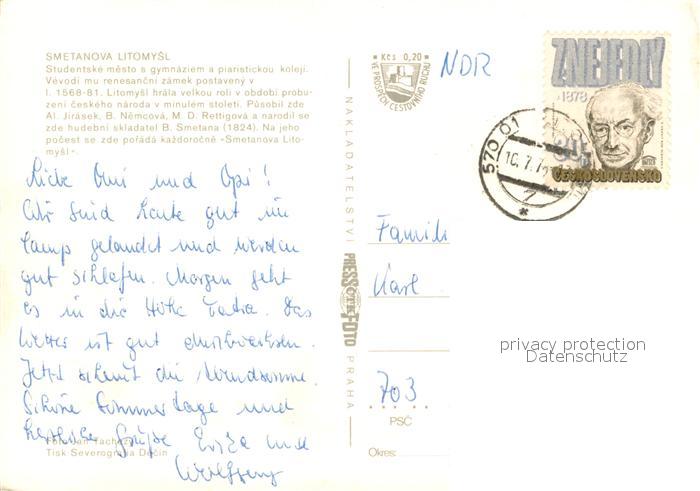 SMETANOVA LITOMYŠL
Studentské město s gymnáziem a piaristickou kolejí.
Vévodí mu renesanční zámek postavený v
l. 1568-81. Litomyšl hrála velkou roli v období probu-
zení českého národa v minulém století. Působil zde
Al. Jirásek, B. Němcová, M. D. Rettigová a narodil se
zde hudební skladatel B. Smetana (1824). Na jeho
počest se zde pořádá každoročně «Smetanova Lito-
myšl».
Liebe Omi und Opi!
Wir sind heute gut im
Camp gelandet und werden
gut schlafen. Morgen geht
es in die Hohe Tatra. Das
Wetter ist gut
Jetzt scheint die Abendsonne.
Schöne Sommertage und
herzliche Grüße
Wolfgang
Tisk Severografia Děčín
NAKLADATELSTVÍ
PRESSFOTO
PRAHA
Kčs 0,20
VE PROSPĚCH CESTOVNÍHO RUCHU
NDR
Z. NEJEDLÝ
1878
ČESKOSLOVENSKO
570 01
10.7.7
Famili
Karl
703
PSČ
Okres:
privacy protection
Datenschutz